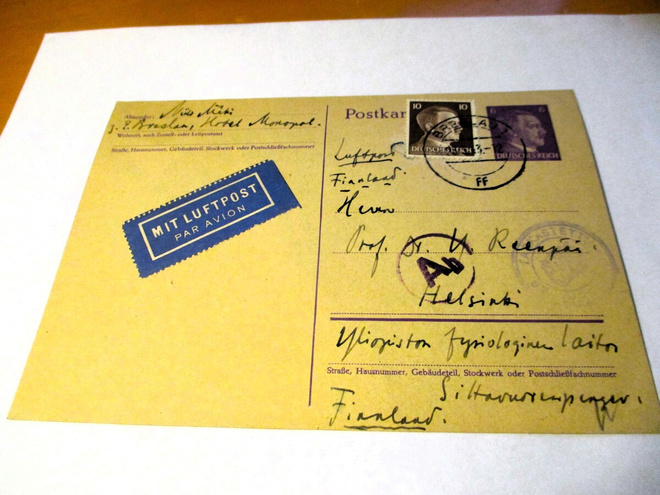 Absender:
z. Z. Breslau, Hotel Monopol.
Wohnort, auch Zustell- oder Leitpostamt
Straße, Hausnummer, Gebäudeteil, Stockwerk oder Postschließfachnummer
MIT LUFTPOST
PAR AVION
Postkar
10 10
DEUTSCHES REICH
6 6
DEUTSCHES REICH
ff
Luftpost
Finnland
Herrn
Prof. Dr. Y. Reenpää.
Ab
Helsinki
Yliopiston fysiologinen laitos
Straße, Hausnummer, Gebäudeteil, Stockwerk oder Postschließfachnummer
Finnland.